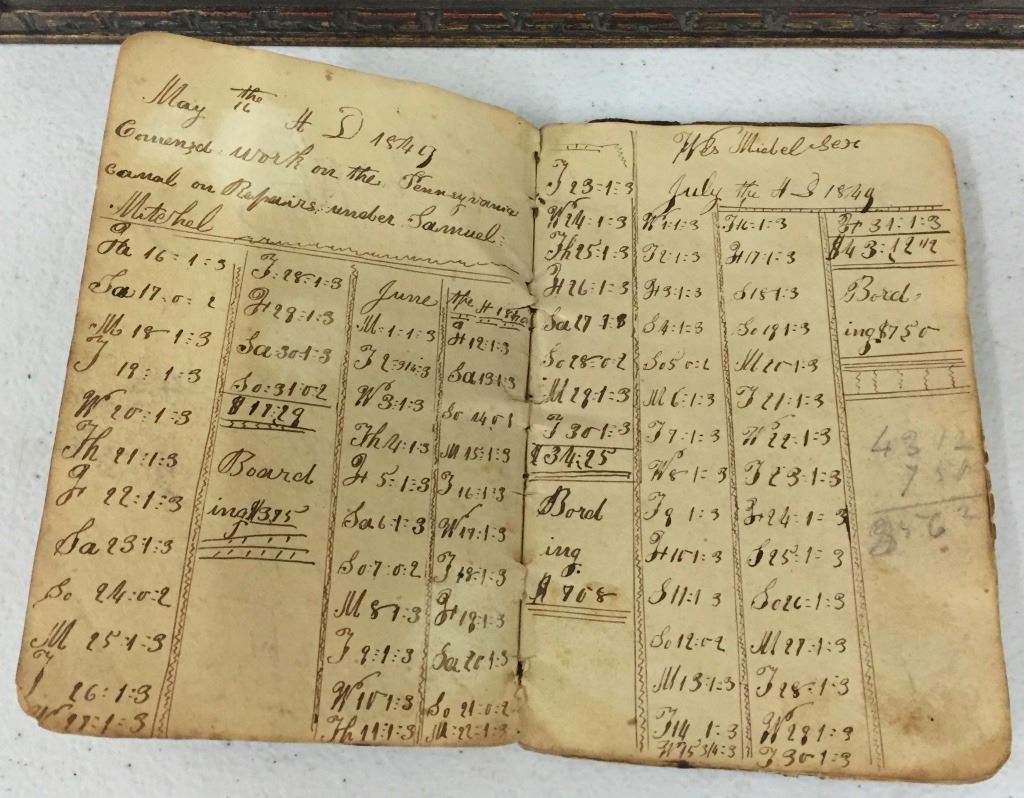 May the 16 A D 1849
Comensd work on the Pennsyvania
canal on Repairs under Samuel =
Mitchel
16 = 1 = 3
Sa 17 = 0 = 2
M 18 = 1 = 3
T 19 = 1 = 3
W 20 = 1 = 3
Th 21 = 1 = 3
F 22 = 1 = 3
Sa 23 = 1 = 3
So 24 = 0 = 2
M 25 = 1 = 3
T 26 = 1 = 3
W 27 = 1 = 3
T 28 = 1 = 3
F 29 = 1 = 3
Sa 30 = 1 = 3
So = 31 = 0 = 2
$ 17 = 29
Board
ing $ 3 75
June the A 1849
M = 1 = 1 = 3
T 2 = 3/4 = 3
W 3 = 1 = 3
Th 4 = 1 = 3
F 5 = 1 = 3
Sa 6 = 1 = 3
So = 7 = 0 = 2
M 8 = 1 = 3
T 9 = 1 = 3
W 10 = 1 = 3
Th 11 = 1 = 3
F 12 = 1 = 3
Sa 13 = 1 = 3
So 14 = 0 = 1
M 15 = 1 = 3
T 16 = 1 = 3
W 17 = 1 = 3
T 18 = 1 = 3
F 19 = 1 = 3
Sa 20 = 1 = 3
So 21 = 0 = 2
M = 22 = 1 = 3
T 23 = 1 = 3
W 24 = 1 = 3
Th 25 = 1 = 3
F 26 = 1 = 3
Sa 27
So 28 = 0 = 2
M 29 = 1 = 3
T 30 = 1 = 3
$ 34 = 25
Bord
ing
$ 7 0 8
July the A D 1849
W 1 = 1 = 3
T 2 = 1 = 3
F 3 = 1 = 3
S 4 = 1 = 3
So 5 = 0 = 2
M 6 = 1 = 3
T 7 = 1 = 3
W 8 = 1 = 3
T 9 1 = 3
F 10 = 1 = 3
S 11 = 1 3
So 12 = 0 = 2
M 13 = 1 = 3
T 14 = 1 = 3
W 15 3/4 = 3
T 16 = 1 = 3
F 17 = 1 = 3
S 18 = 1 = 3
So 19 = 1 = 3
M 20 = 1 = 3
T 21 = 1 = 3
W 22 = 1 = 3
T 23 = 1 = 3
F 24 = 1 = 3
S 25 = 1 = 3
So 26 = 1 = 3
M 27 = 1 = 3
T 28 = 1 = 3
W 29 = 1 = 3
T 30 = 1 = 3
F 31 = 1 = 3
$ 43 = 12 1/2
Bord =
ing $ 7 50
43 12